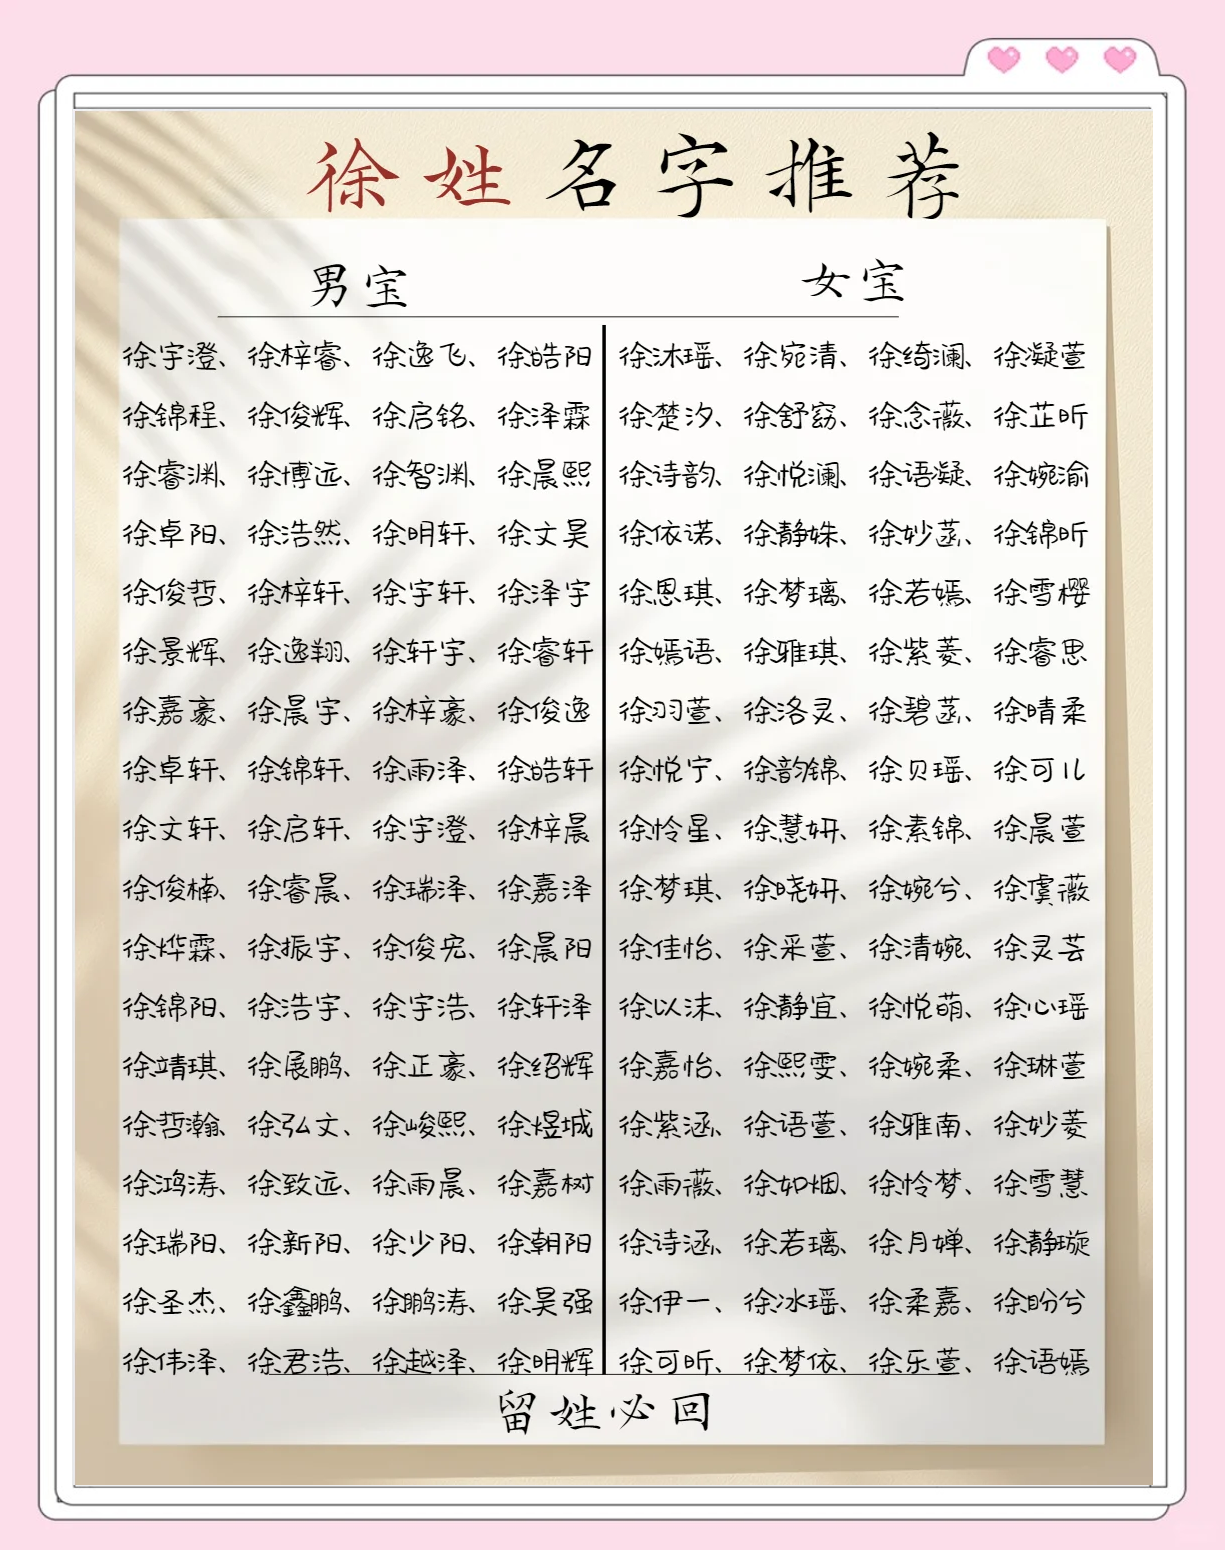 徐姓名字推荐
男宝
女宝
徐宇澄、徐梓睿、徐逸飞、徐皓阳
徐锦程、徐俊辉、徐启铭、徐泽霖
徐睿渊、徐博远、徐智渊、徐晨熙
徐卓阳、徐浩然、徐明轩、徐文昊
徐俊哲、徐梓轩、徐宇轩、徐泽宇
徐景辉、徐逸翔、徐轩宇、徐睿轩
徐嘉豪、徐晨宇、徐梓豪、徐俊逸
徐卓轩、徐锦轩、徐雨泽、徐皓轩
徐文轩、徐启轩、徐宇澄、徐梓晨
徐俊楠、徐睿晨、徐瑞泽、徐嘉泽
徐烨霖、徐振宇、徐俊宏、徐晨阳
徐锦阳、徐浩宇、徐宇浩、徐轩泽
徐靖琪、徐展鹏、徐正豪、徐绍辉
徐哲瀚、徐弘文、徐峻熙、徐煜城
徐鸿涛、徐致远、徐雨晨、徐嘉树
徐瑞阳、徐新阳、徐少阳、徐朝阳
徐圣杰、徐鑫鹏、徐鹏涛、徐昊强
徐伟泽、徐君浩、徐越泽、徐明辉
徐沐瑶、徐宛清、徐绮澜、徐凝萱
徐楚汐、徐舒窈、徐念薇、徐芷昕
徐诗韵、徐悦澜、徐语凝、徐婉渝
徐依诺、徐静姝、徐妙菡、徐锦昕
徐思琪、徐梦璃、徐若嫣、徐雪樱
徐嫣语、徐雅琪、徐紫菱、徐睿思
徐羽萱、徐洛灵、徐碧菡、徐晴柔
徐悦宁、徐韵锦、徐贝瑶、徐可儿
徐怜星、徐慧妍、徐素锦、徐晨萱
徐梦琪、徐晓妍、徐婉兮、徐虞薇
徐佳怡、徐采萱、徐清婉、徐灵芸
徐以沫、徐静宜、徐悦萌、徐心瑶
徐嘉怡、徐熙雯、徐婉柔、徐琳萱
徐紫涵、徐语萱、徐雅南、徐妙菱
徐雨薇、徐如烟、徐怜梦、徐雪慧
徐诗涵、徐若璃、徐月婵、徐静璇
徐伊一、徐冰瑶、徐柔嘉、徐盼兮
徐可昕、徐梦依、徐乐萱、徐语嫣
留姓必回